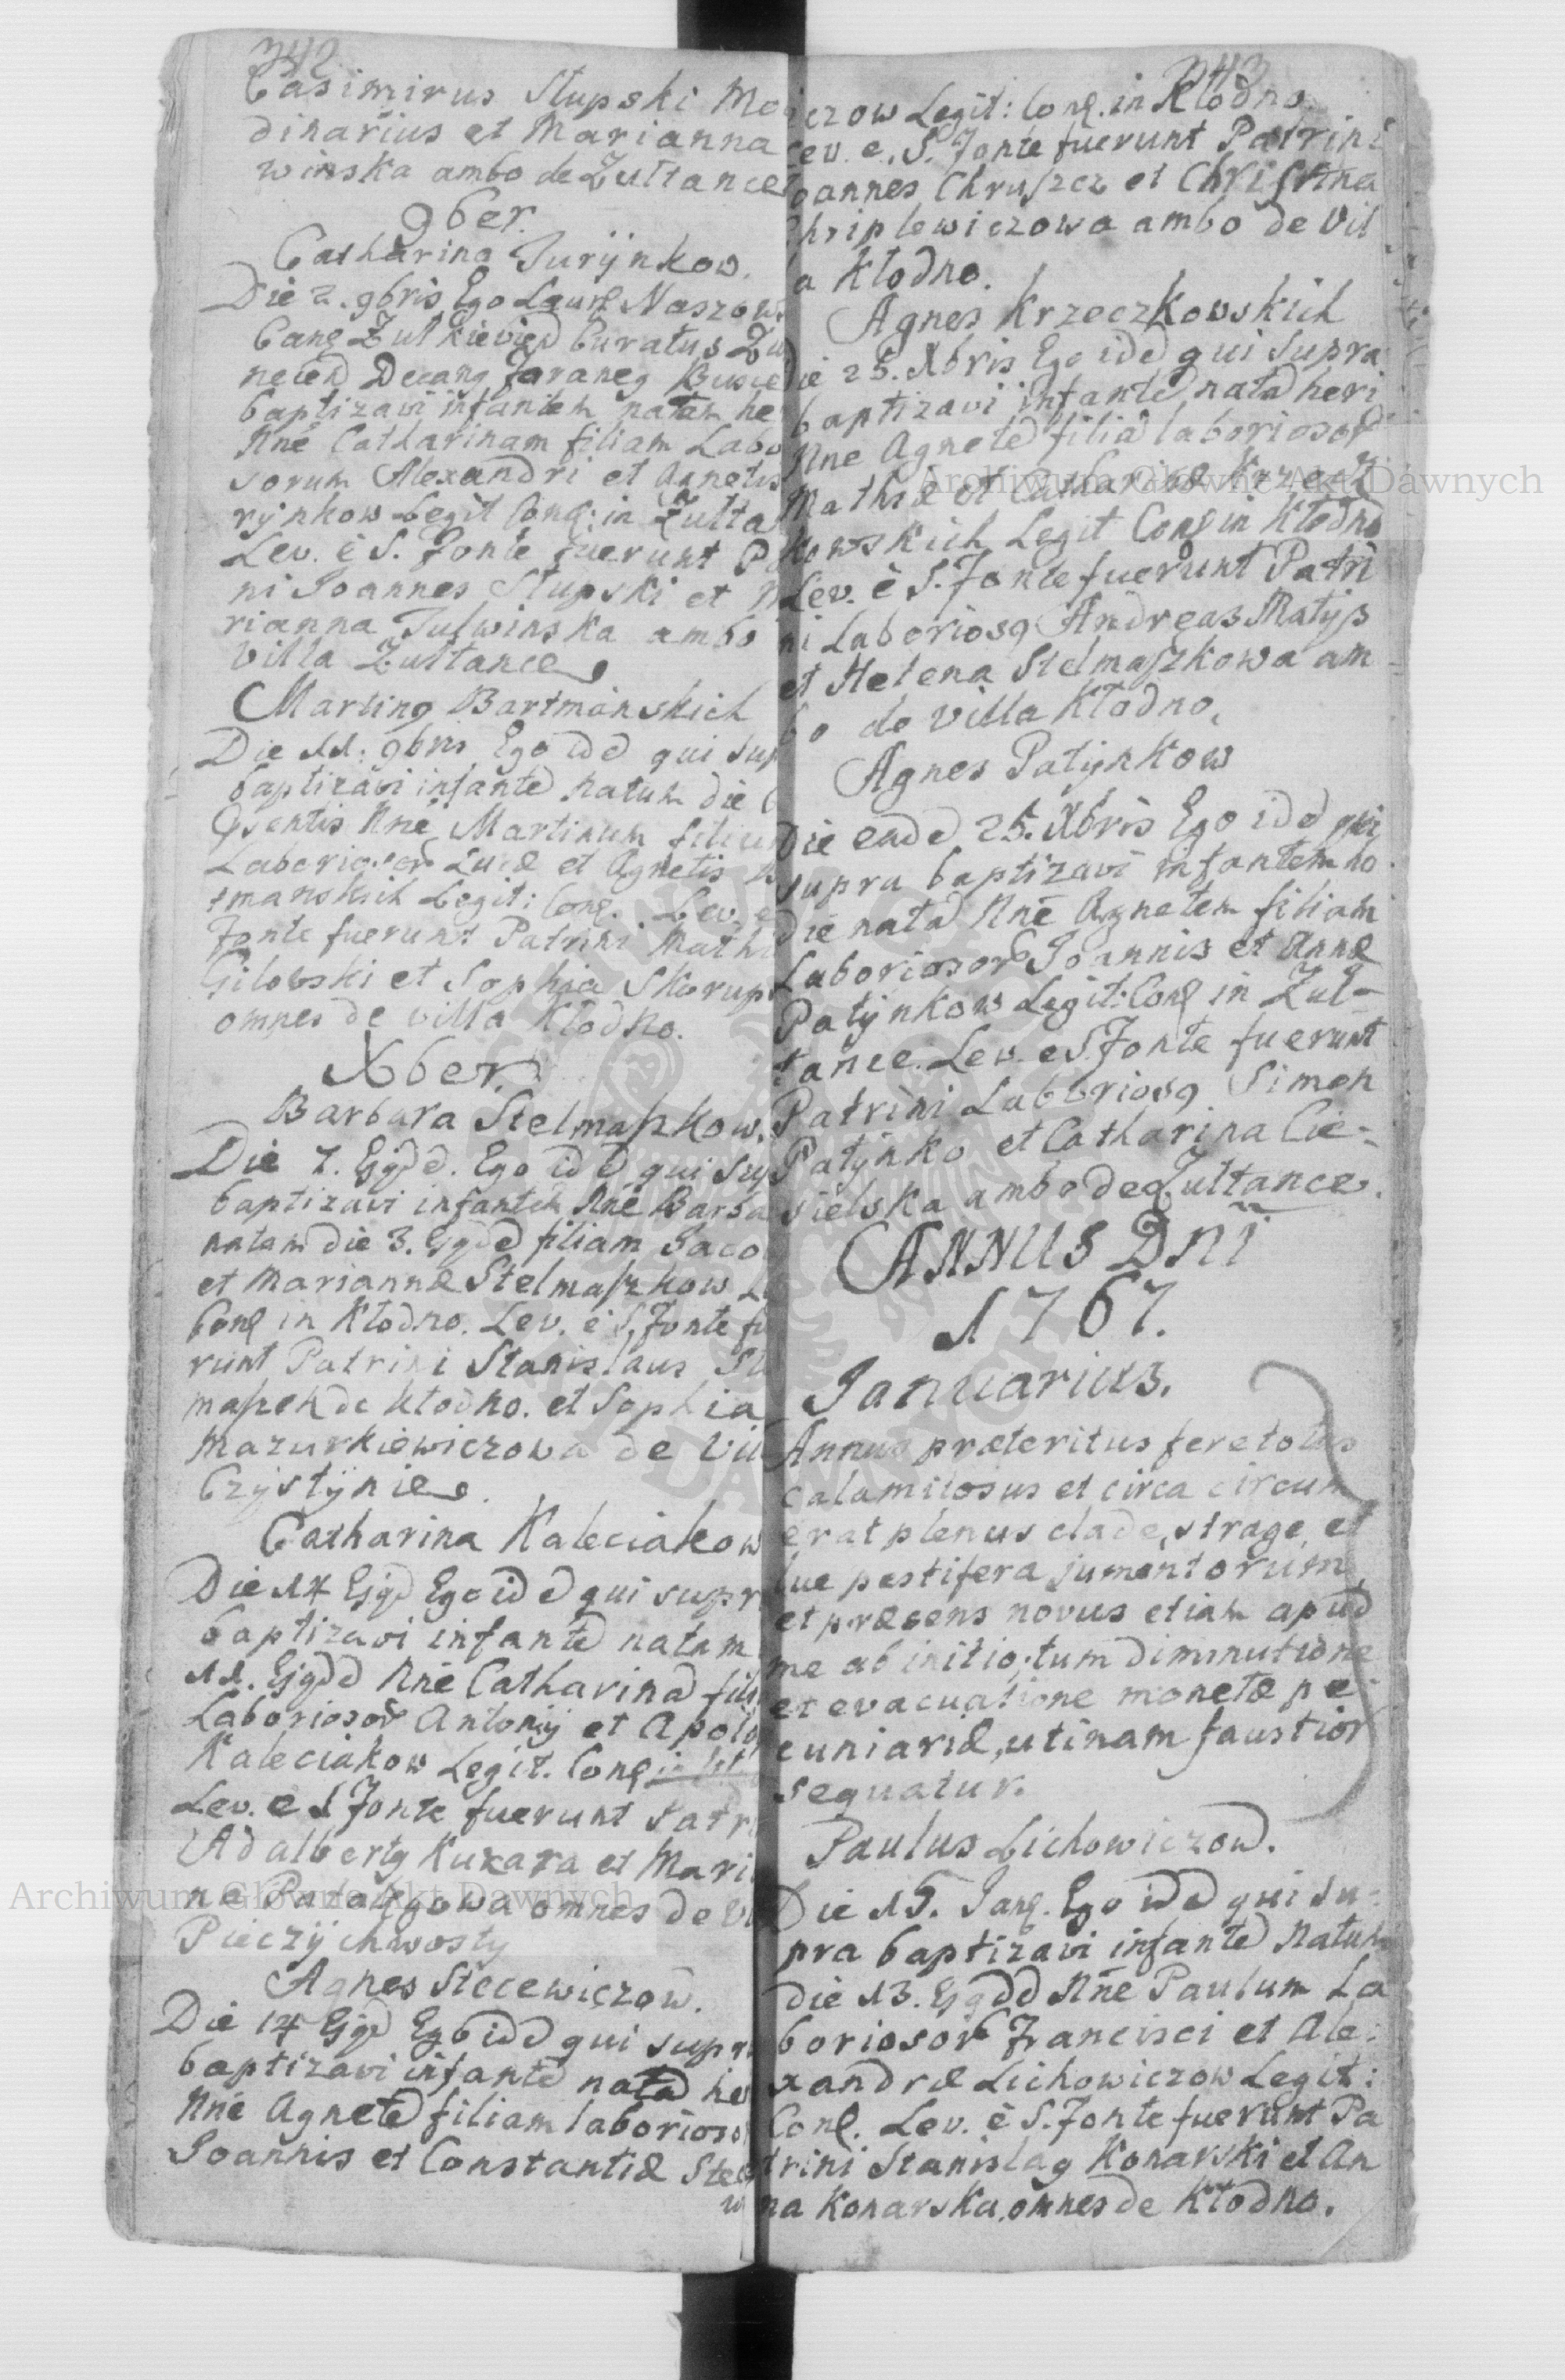 342
Casimirus Słupski Mo
dinarius et Marianna
winska ambo de Zułtance
9ber.
Catharina Jurÿnkow.
Die 2. 9bris Ego Laurę Naszows
Canę Zułkieviend Curatus Zu
necend Decanq Jaraneq Busce
baptizavi infantem natam he
Nne Catharinam filiam Labo
sorum Alexandri et Agnetis
rÿnkow Legit Conę: in Zułta
Lev. è S. Fonte fuerunt P
ni Joannes Słupski et M
rianna Julwinska ambo
Villa Zułtance
Martinq Bartmanskich
Die 11: 9bris Ego idd qui sup
baptizavi infantd natum die
qsentis Nne Martinum filiu
Laboriosor Lucæ et Agnetis B
tmanskich Legit: Conę. Lev. e
Fonte fuerunt Patrini Mathi
Gilowski et Sophia Skorup
omnes de villa Kłodno.
Xber.
Barbara Stelmaszkow.
Die 7. Ejqdd. Ego idd qui sup
baptizavi infantem Nne Barba
natam die 3. Ejqdd filiam Jaco
et Mariannæ Stelmaszkow L
Conę in Kłodno. Lev. è S. Fonte fu
runt Patrini Stanislaus St
maszek de Kłodno. et Sophia
Mazurkiewiczowa de Vil
Czÿstÿnie.
Catharina Kaleciakow
Die 14 Ejqd Ego idd qui supr
baptizavi infantd natam
11. Ejqdd Nne Catharinad fili
Laboriosor Antonij et Apolo
Kaleciakow Legit. Conę
Lev. è S Fonte fuerunt Patr
Adalbertq Kuxara et Mari
na omnes de Vi
Pieczÿchwostÿ
Agnes Stecewiczow.
Die 14 Ejqd Ego idd qui supr
baptizavi infantd natad her
Nne Agnetd filiam laborioso
Joannis et Constantiæ Stec
w
343
czow Legit: Conę. in Kłodno.
Lev. e. S. Fonte fuerunt Patrini
oannes Chruszcz et Christina
hriplewiczowa ambo de Vil
a Kłodno.
Agnes Krzeczkowskich
Die 25. Xbris Ego idd qui supra
baptizavi infantd natad heri
Nne Agnetd filia laboriosor
Mathiæ et Catharinæ Krzecz
kowskich Legit Conę in Kłodno
Lev. è S. Fonte fuerunt Patri
ni Laboriosq Andreas Matÿs
et Helena Stelmaszkowa am
bo de villa Kłodno.
Agnes Patÿnkow
Die eadd 25. Xbris Ego idd qui
supra baptizavi infantem ho
die natad Nne Agnetem filiam
Laboriosor Joannis et Annæ
Patÿnkow Legit: Conę in Zuł-
tance. Lev. e S. Fonte fuerunt
Patrini Laboriosq Simon
Patÿnko et Catharina Cie-
sielska ambo de Zułtance.
ANNUS Dni
1767.
Januarius.
Annus præteritus fere totus
calamitosus et circa circum
erat plenus clade, strage, et
lue pestifera jumentorum
et præsens novus etiam apud
me ab initio, tum diminutione
et evacuatione monetæ pe
cuniariæ, utinam faustior
sequatur.
Paulus Lichowiczow.
Die 15. Janę. Ego idd qui su-
pra baptizavi infantd Natum
die 13. Ejqdd Nne Paulum La
boriosor Francisci et Ale:
xandræ Lichowiczow Legit:
Conę. Lev. è S. Fonte fuerunt Pa
trini Stanislaq Konarski et An
na Konarska, omnes de Kłodno.
Archiwum Główne Akt Dawnych
Archiwum Główne Akt Dawnych